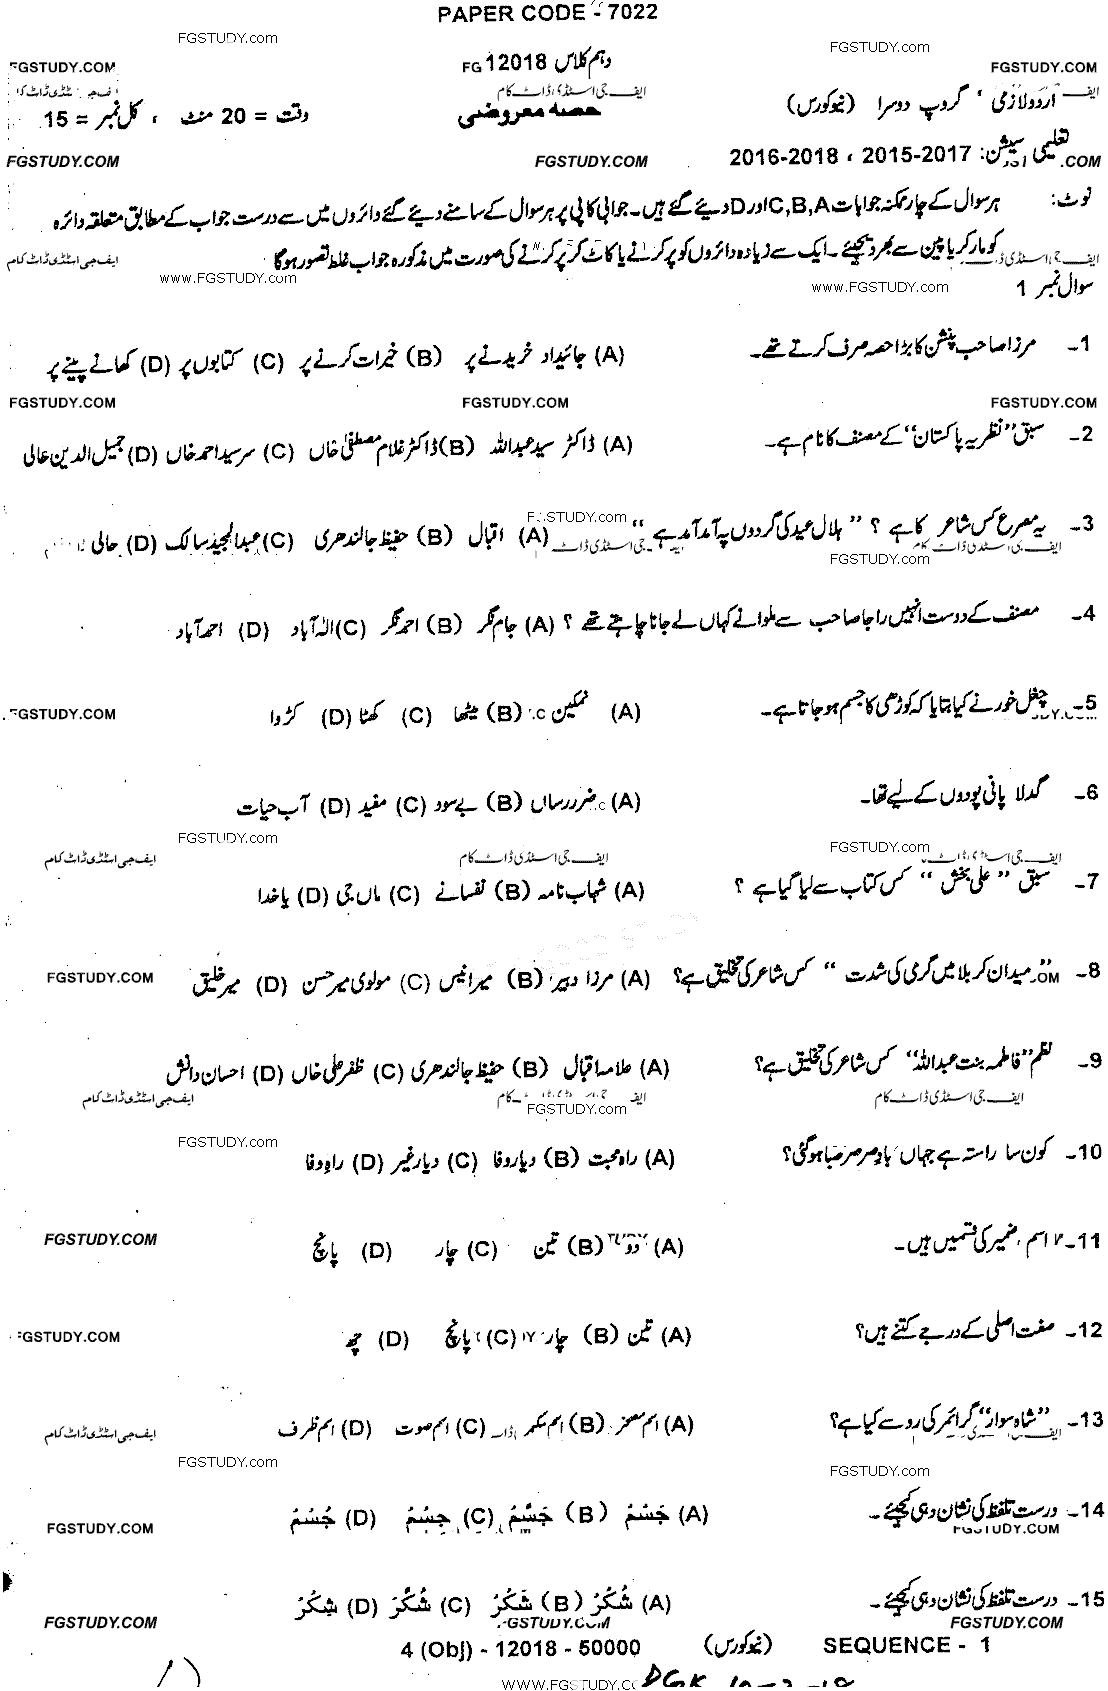 PAPER CODE - 7022
FGSTUDY.com
FGSTUDY.com
دہم کلاس 12018 FG
FGSTUDY.COM
FGSTUDY.COM
اردو لازمی ، گروپ دوسرا (نیوکورس)
ایف جی اسٹڈی ڈاٹ کام
حصہ معروضی
وقت = 20 منٹ ، کل نمبر = 15
تعلیمی سیشن: 2015-2017 ، 2016-2018
FGSTUDY.COM
FGSTUDY.COM
نوٹ: ہر سوال کے چار ممکنہ جوابات C,B,A اور D دیئے گئے ہیں۔ جوابی کاپی پر ہر سوال کے سامنے دیئے گئے دائروں میں سے درست جواب کے مطابق متعلقہ دائرہ
کو مارکر یا پین سے بھر دیجئیے ۔ ایک سے زیادہ دائروں کو پر کرنے یا کاٹ کر پر کرنے کی صورت میں مذکورہ جواب غلط تصور ہوگا
ایف جی اسٹڈی ڈاٹ کام
www.FGSTUDY.com
www.FGSTUDY.com
سوال نمبر 1
1۔ مرزا صاحب پنشن کا بڑا حصہ صرف کرتے تھے۔ (A) جائیداد خریدنے پر (B) خیرات کرنے پر (C) کتابوں پر (D) کھانے پینے پر
FGSTUDY.COM
FGSTUDY.COM
FGSTUDY.COM
2۔ سبق "نظریہ پاکستان" کے مصنف کا نام ہے۔ (A) ڈاکٹر سید عبداللہ (B) ڈاکٹر غلام مصطفیٰ خاں (C) سرسید احمد خاں (D) جمیل الدین عالی
FGSTUDY.com
3۔ یہ مصرع کس شاعر کا ہے ؟ "ہلال عید کی گردوں پہ آمد آمد ہے" (A) اقبال (B) حفیظ جالندھری (C) عبدالمجید سالک (D) حالی
FGSTUDY.com
4۔ مصنف کے دوست انہیں راجا صاحب سے ملوانے کہاں لے جانا چاہتے تھے ؟ (A) جام نگر (B) احمد نگر (C) الٰہ آباد (D) احمد آباد
5۔ چغل خور نے کیا بتایا کہ کوڑھی کا جسم ہو جاتا ہے۔ (A) نمکین (B) میٹھا (C) کھٹا (D) کڑوا
FGSTUDY.COM
6۔ گدلا پانی پودوں کے لیے تھا۔ (A) ضرر رساں (B) بے سود (C) مفید (D) آب حیات
FGSTUDY.com
FGSTUDY.com
ایف جی اسٹڈی ڈاٹ کام
ایف جی اسٹڈی ڈاٹ کام
ایف جی اسٹڈی ڈاٹ کام
7۔ سبق "علی بخش" کس کتاب سے لیا گیا ہے ؟ (A) شہاب نامہ (B) نفسانے (C) ماں جی (D) یا خدا
8۔ "میدان کربلا میں گرمی کی شدت" کس شاعر کی تخلیق ہے؟ (A) مرزا دبیر (B) میر انیس (C) مولوی میر حسن (D) میر خلیق
FGSTUDY.COM
9۔ نظم "فاطمہ بنت عبداللہ" کس شاعر کی تخلیق ہے؟ (A) علامہ اقبال (B) حفیظ جالندھری (C) ظفر علی خاں (D) احسان دانش
ایف جی اسٹڈی ڈاٹ کام
ایف جی اسٹڈی ڈاٹ کام
ایف جی اسٹڈی ڈاٹ کام
FGSTUDY.com
FGSTUDY.com
10۔ کون سا راستہ ہے جہاں باد صرصر صبا ہو گئی؟ (A) راہ محبت (B) دیار وفا (C) دیار غیر (D) راہِ وفا
11۔ اسم ضمیر کی قسمیں ہیں۔ (A) دو (B) تین (C) چار (D) پانچ
FGSTUDY.COM
12۔ صفت اصلی کے درجے کتنے ہیں؟ (A) تین (B) چار (C) پانچ (D) چھ
FGSTUDY.COM
13۔ "شاہ سوار" گرائمر کی رو سے کیا ہے؟ (A) اسم مصغر (B) اسم مکبر (C) اسم صوت (D) اسم ظرف
ایف جی اسٹڈی ڈاٹ کام
FGSTUDY.com
FGSTUDY.com
14۔ درست تلفظ کی نشان دہی کیجئیے۔ (A) جَسْمْ (B) جَسَّمُ (C) جِسْمْ (D) جُسْمْ
FGSTUDY.COM
FGSTUDY.COM
15۔ درست تلفظ کی نشان دہی کیجئیے۔ (A) شُکُرْ (B) شَکُرْ (C) شُکْرْ (D) شِکُرْ
FGSTUDY.COM
FGSTUDY.COM
FGSTUDY.COM
4 (Obj) - 12018 - 50000 (نیوکورس) SEQUENCE - 1